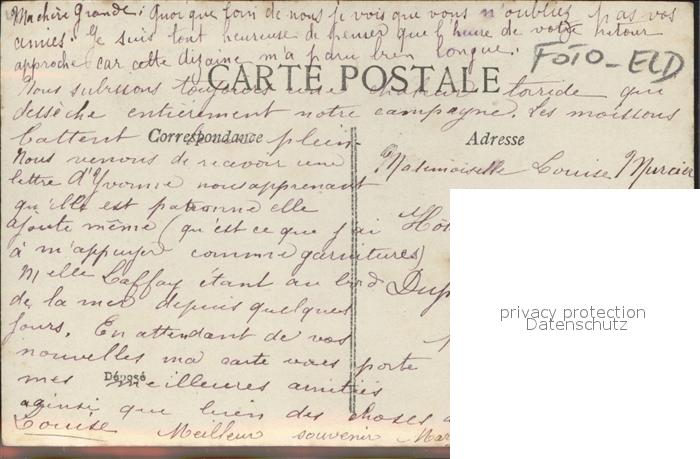 Ma chère Grande. Quoique loin de nous je vois que vous n'oubliez pas vos
amies. Je suis tout heureuse de penser que l'heure de votre retour
approche car cette dizaine m'a paru bien longue.
FOTO-ELD
CARTE POSTALE
Nous subissons toujours une chaleur torride qui
dessèche entièrement notre campagne. Les moissons
battent leur plein.
Correspondance
Adresse
Nous venons de recevoir une
Mademoiselle Louise Mercier
lettre d'Yvonne nous apprenant
qu'elle est patronne elle
ajoute même (qu'est ce que j'ai
Hôt
à m'appuyer comme garnitures)
Melle Laffay étant au bord
Dup
de la mer depuis quelques
jours. En attendant de vos
nouvelles ma carte vous porte
Déposé
mes meilleures amitiés
aginsi que bien des choses
Louise
Meilleur souvenir Mar
privacy protection
Datenschutz